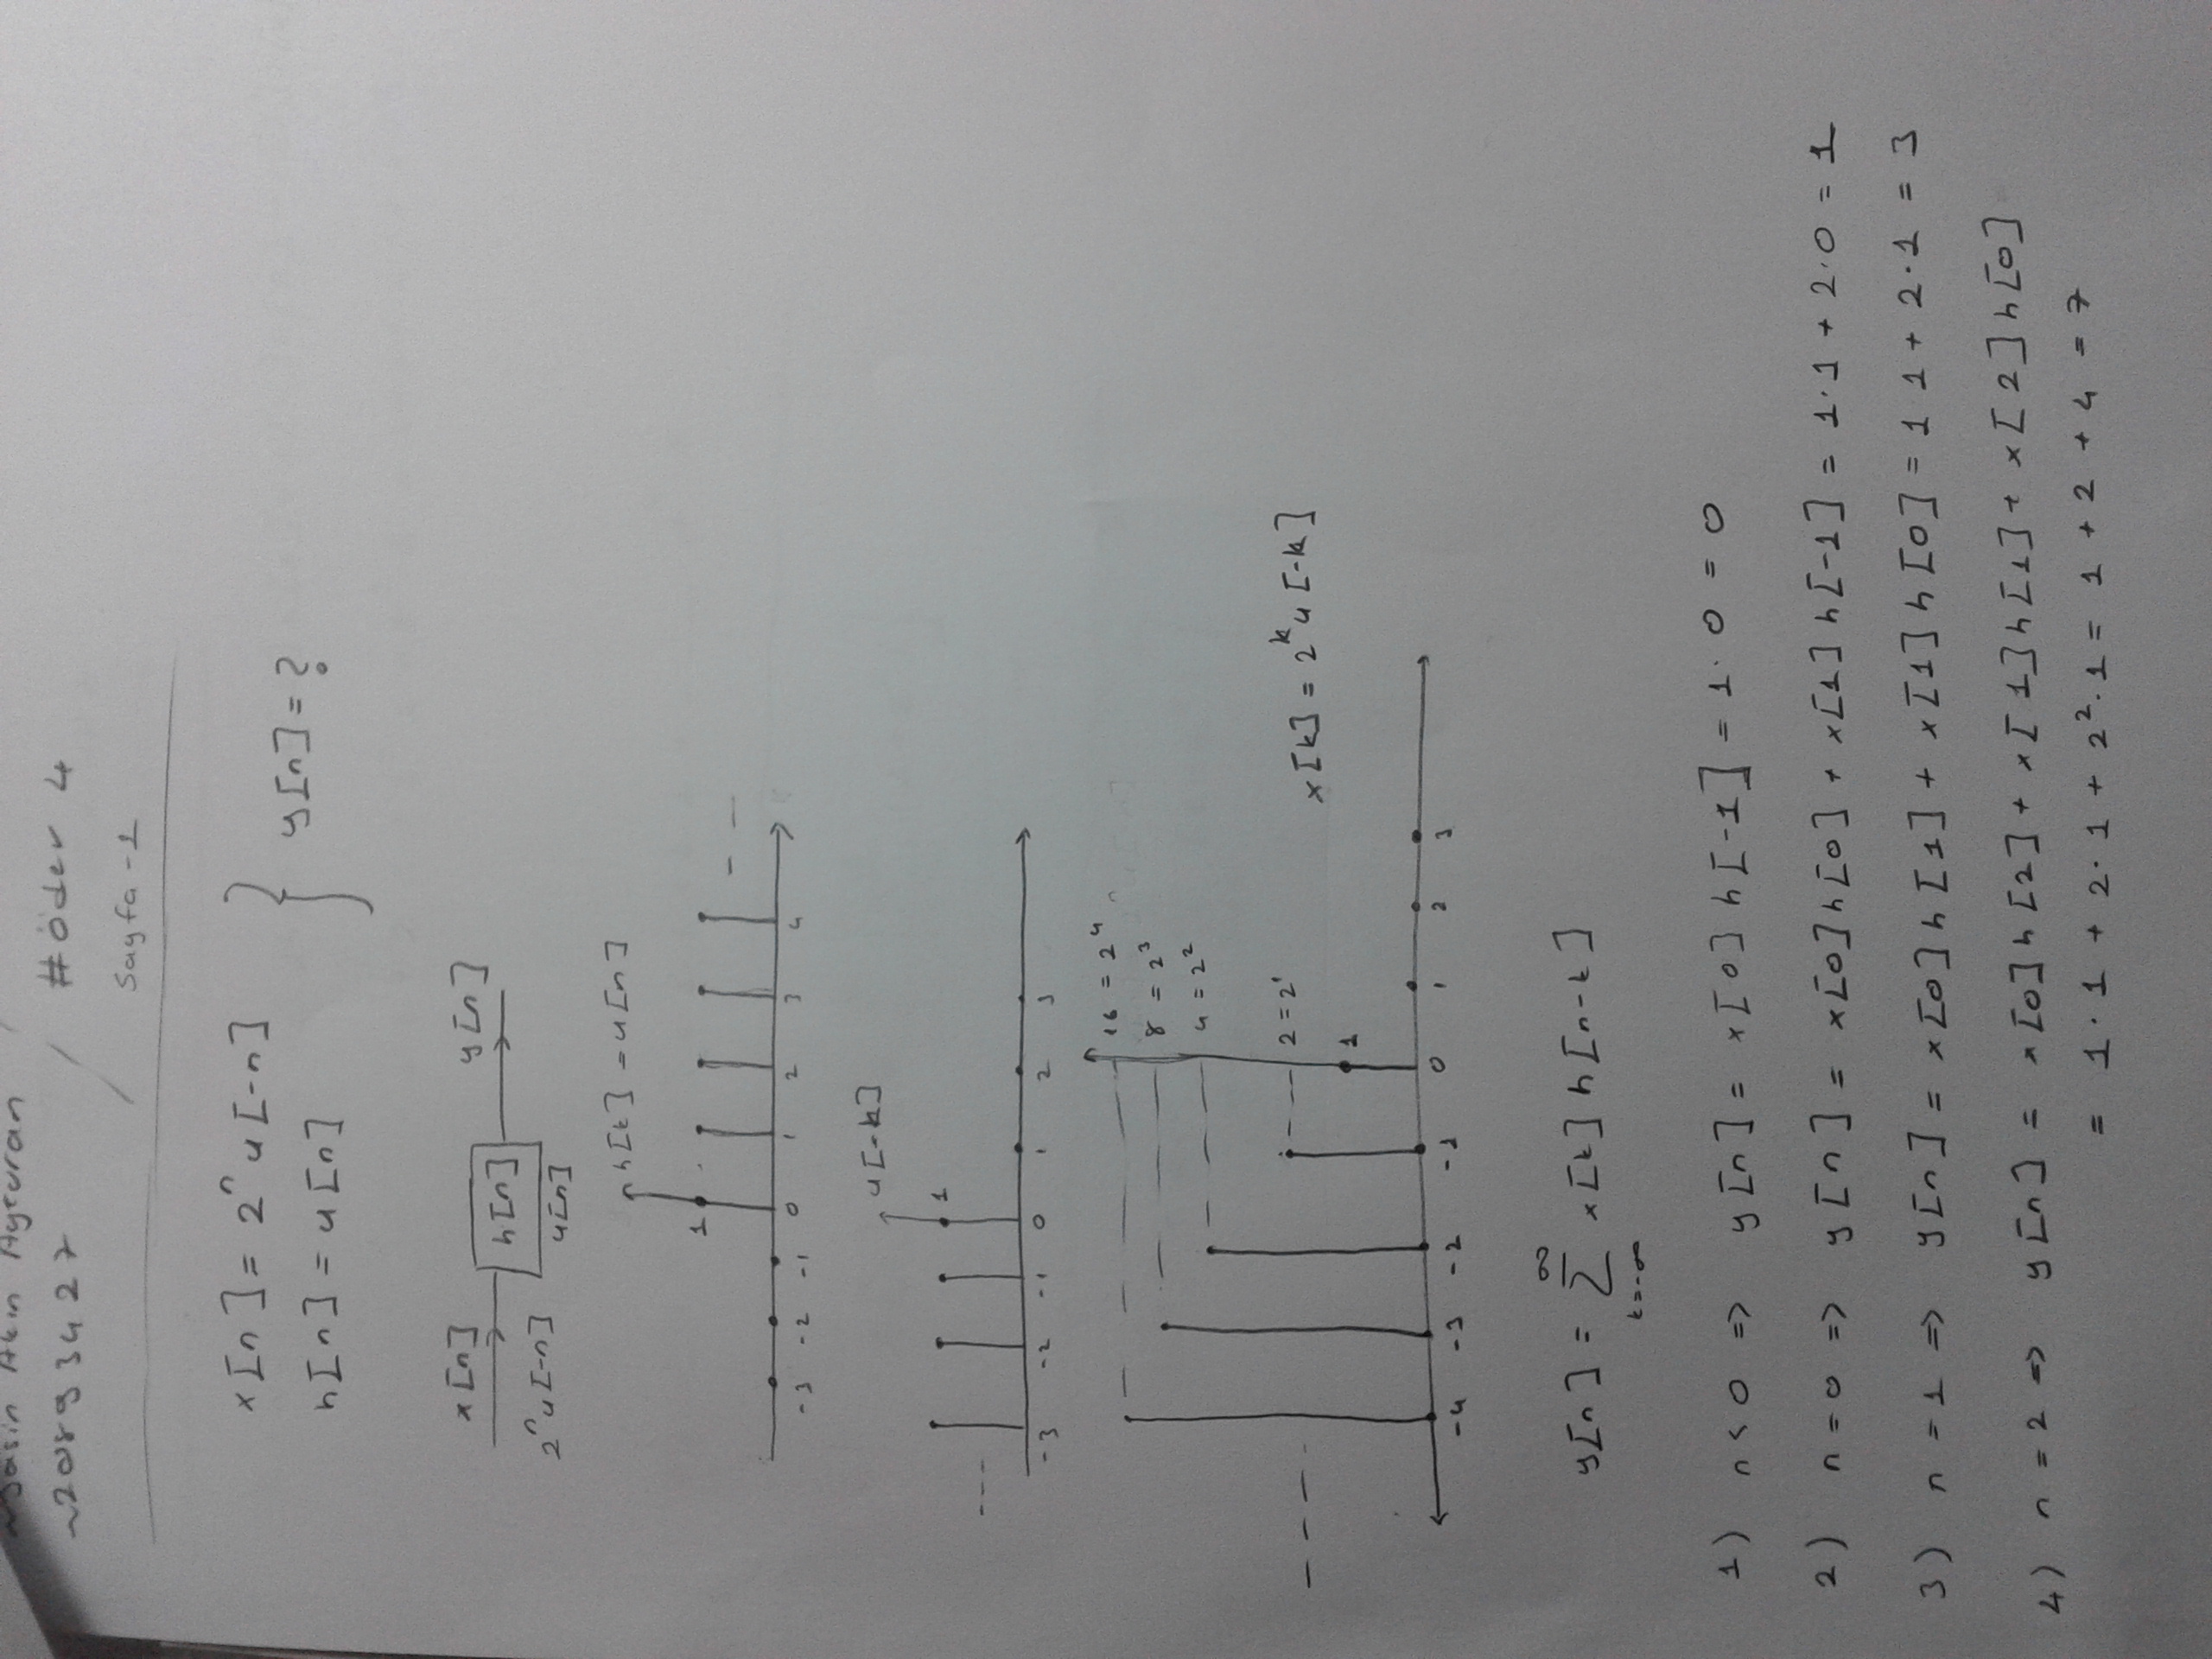 Akın Ayturan
20893427
#öder 4
Sayfa -1
x[n] = 2ⁿ u[-n]
h[n] = u[n]
y[n] = ?
x[n]
2ⁿu[-n]
h[n]
u[n]
y[n]
h[k] = u[n]
1
-3 -2 -1 0 1 2 3 4
u[-k]
1
-3 -2 -1 0 1 2 3
16 = 2⁴
8 = 2³
4 = 2²
2 = 2¹
1
x[k] = 2ᵏ u[-k]
-4 -3 -2 -1 0 1 2 3
∞
y[n] = Σ x[k] h[n-k]
k=-∞
1) n < 0 => y[n] = x[0] h[-1] = 1 · 0 = 0
2) n = 0 => y[n] = x[0]h[0] + x[1]h[-1] = 1·1 + 2·0 = 1
3) n = 1 => y[n] = x[0]h[1] + x[1]h[0] = 1 1 + 2·1 = 3
4) n = 2 => y[n] = x[0]h[2] + x[1]h[1] + x[2]h[0]
= 1 · 1 + 2 · 1 + 2² · 1 = 1 + 2 + 4 = 7